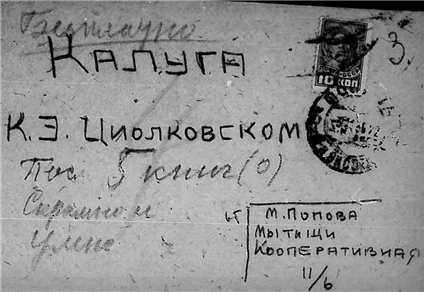 Бесплатно
3.
КАЛУГА
10 КОП
К.Э. ЦИОЛКОВСКОМ
Пос. 5 книг (0)
М. ПОПОВА
МЫТИЩИ
КООПЕРАТИВНАЯ
11/6